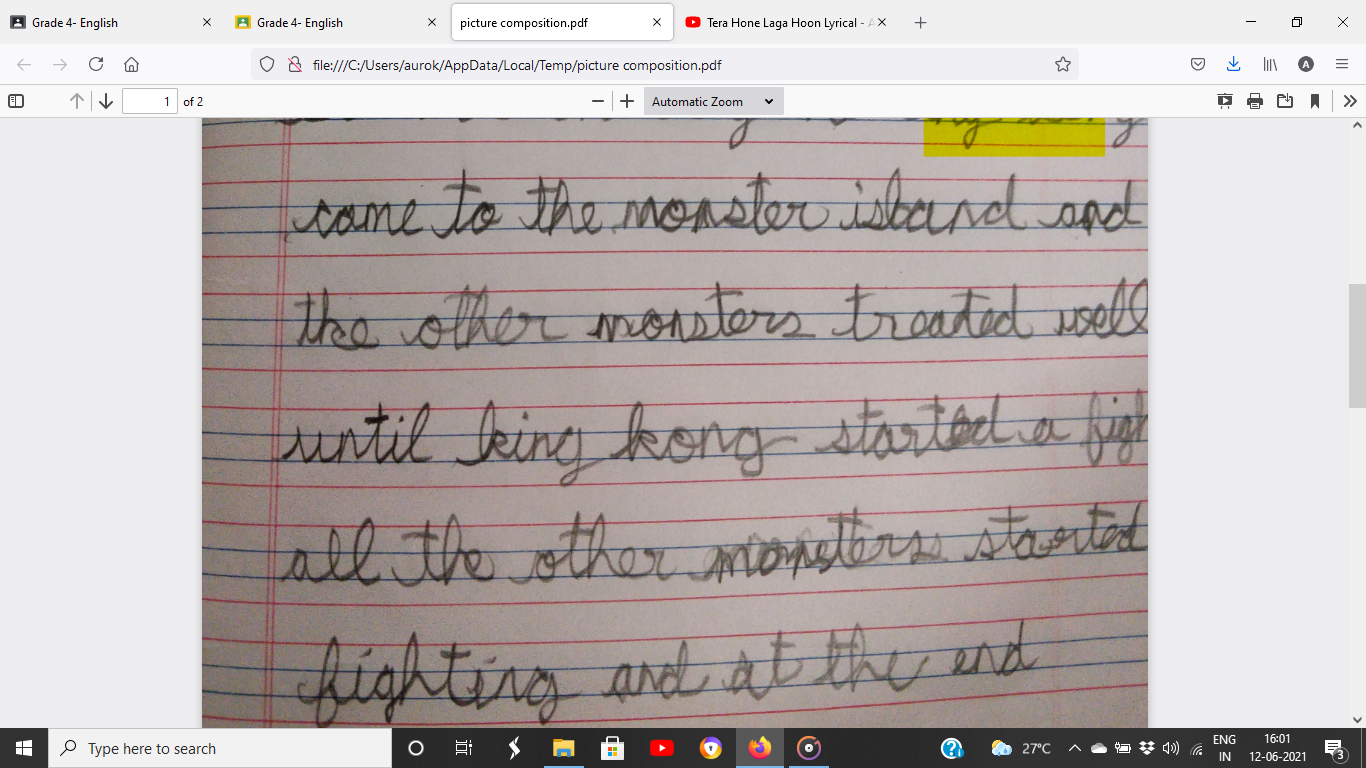 Grade 4- English
Grade 4- English
picture composition.pdf
Tera Hone Laga Hoon Lyrical - A
file:///C:/Users/aurok/AppData/Local/Temp/picture composition.pdf
A
1 of 2
Automatic Zoom
came to the monster island and
the other monsters treated well
until king kong started a figh
all the other monsters started
fighting and at the end
Type here to search
27°C
ENG
IN
16:01
12-06-2021
3